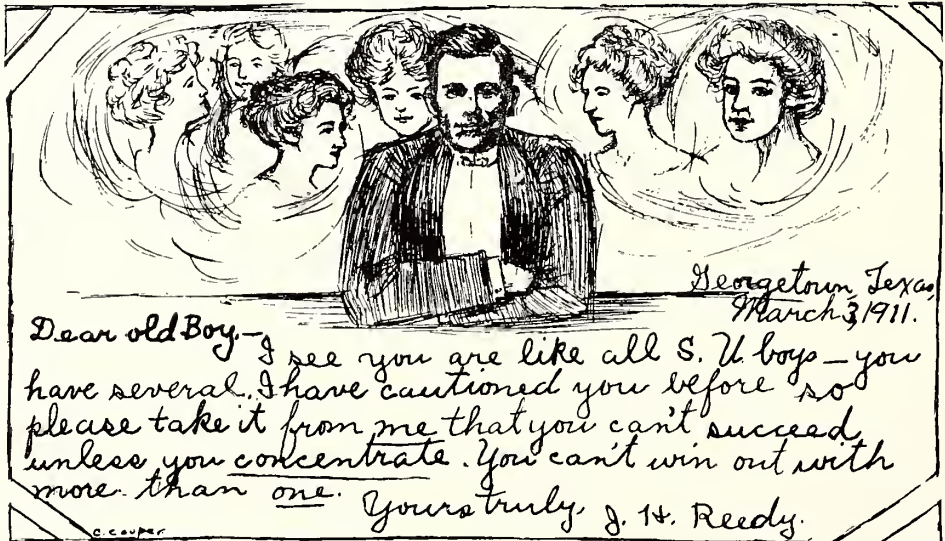 Georgetown, Texas,
March 3, 1911.
Dear old Boy—
I see you are like all S. U. boys—you
have several. I have cautioned you before so
please take it from me that you can't succeed
unless you concentrate. You can't win out with
more than one.
Yours truly, J. H. Reedy.
C. Couper